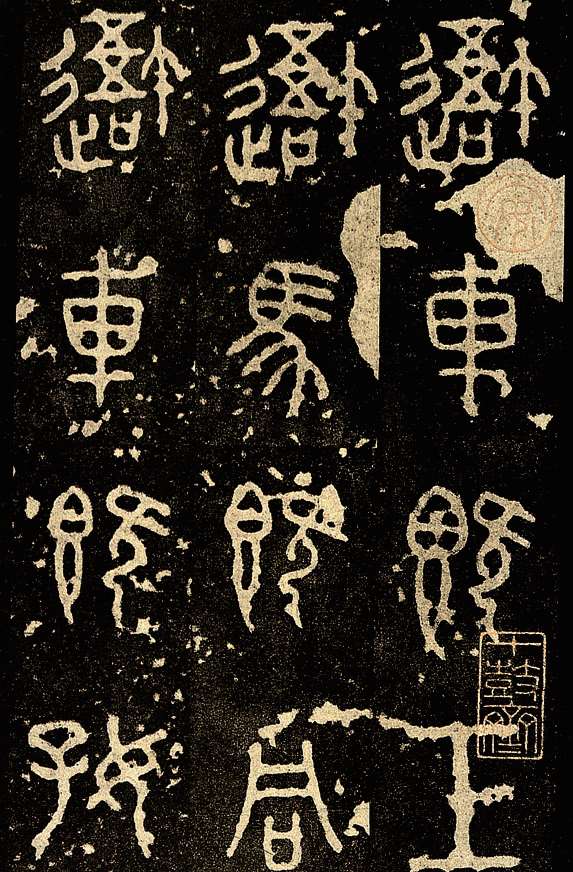 䢩車既工
䢩馬既同
䢩車既好
十鼓齋